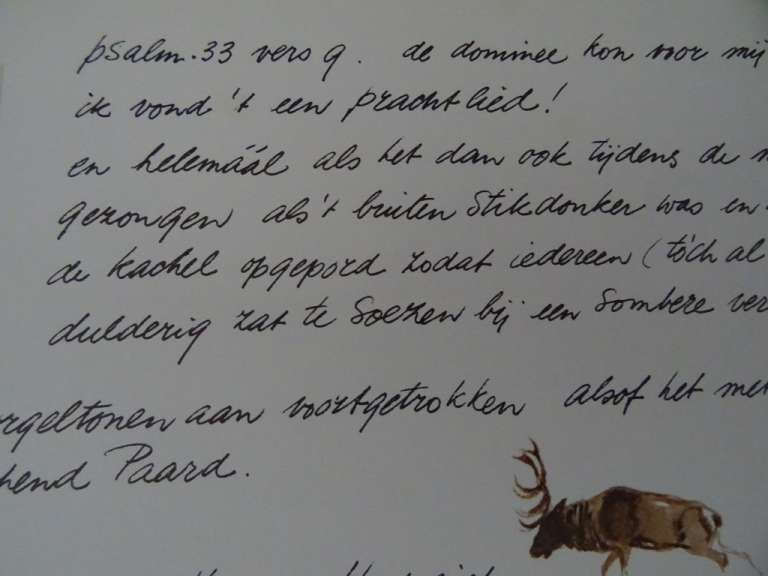 psalm. 33 vers 9. de dominee kon voor mij
ik vond 't een prachtlied!
en helemáál als het dan ook tijdens de
gezongen als 't buiten stikdonker was en
de kachel opgepord zodat iedereen (tóch al
dulderig zat te soezen bij een sombere ver
rgeltonen aan voortgetrokken alsof het met
hend Paard.